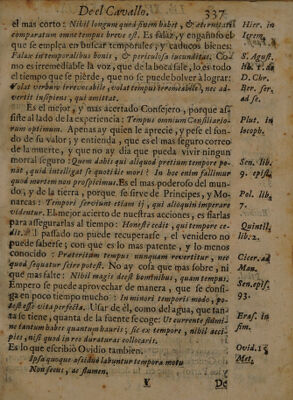 De el Cavallo. 337
el mas corto: Nihil longum quod finem habet, & æternitati
comparatum omne tempus breve est. Es falaz, y engañoso el
que se emplea en buscar temporales, y caducos bienes:
Falax intemporalibus bonis, & periculosa jucunditas. Co-
mo es irremeable la voz, que de la boca sale, lo es todo
el tiempo que se pierde, que no se puede bolver à lograr:
Volat verbum irrevocabile, volat tempus irremeabile, nec ad-
vertit insipiens, qui amittat.
Es el mejor, y mas acertado Consejero, porque as-
siste al lado de la experiencia: Tempus omnium Consiliario-
rum optimum. Apenas ay quien le aprecie, y pese el fon-
do de su valor, y entienda, que es el mas seguro correo
de la muerte, y que no ay dia que pueda vivir ningun
mortal seguro: Quem dabis qui aliquod pretium tempore po-
nat, quid intelligat se quotidie mori? In hoc enim fallimur
quod mortem non prospicimus. Es el mas poderoso del mun-
do, y de la tierra, porque se sirve de Principes, y Mo-
narcas: Tempori serviunt etiam ij, qui aliquid imperare
videntur. El mejor acierto de nuestras acciones, es fiarlas
para assegurarlas al tiempo: Honeste cedit, qui tempore ce-
dit. El passado no puede recuperarse, el venidero no
puede saberse; con que es lo mas patente, y lo menos
conocido: Præteritum tempus nunquam revertitur, nec
quod sequatur scire potest. No ay cosa que mas sobre, ni
que mas falte: Nihil magis deest hominibus, quam tempus.
Empero se puede aprovechar de manera, que se consi-
ga en poco tiempo mucho: In minori temporis modo, po-
test esse vita perfecta. Usar de èl, como del agua, que tan-
ta se tiene, quanta de la fuente se coge: Ut currente flumi-
ne tantum habes quantum hauris; sic ex tempore, nihil acci-
pies, nisi quod in res duraturas collocaris.
Es lo que escribiò Ovidio tambien.
Ipsa quoque assiduo labuntur tempora motu
Non secus, ac flumen.
V De
Hier. in
Ierem.
S. Agust.
D. Chr.
Ber. ser.
ad se.
Plut. in
locoph.
Sen. lib.
9. epist.
Pol. lib.
7.
Quintil.
lib. 2.
Cicer. ad
Man.
Sen. epis.
93.
Eras. in
sim.
Ovid. 15
Met.